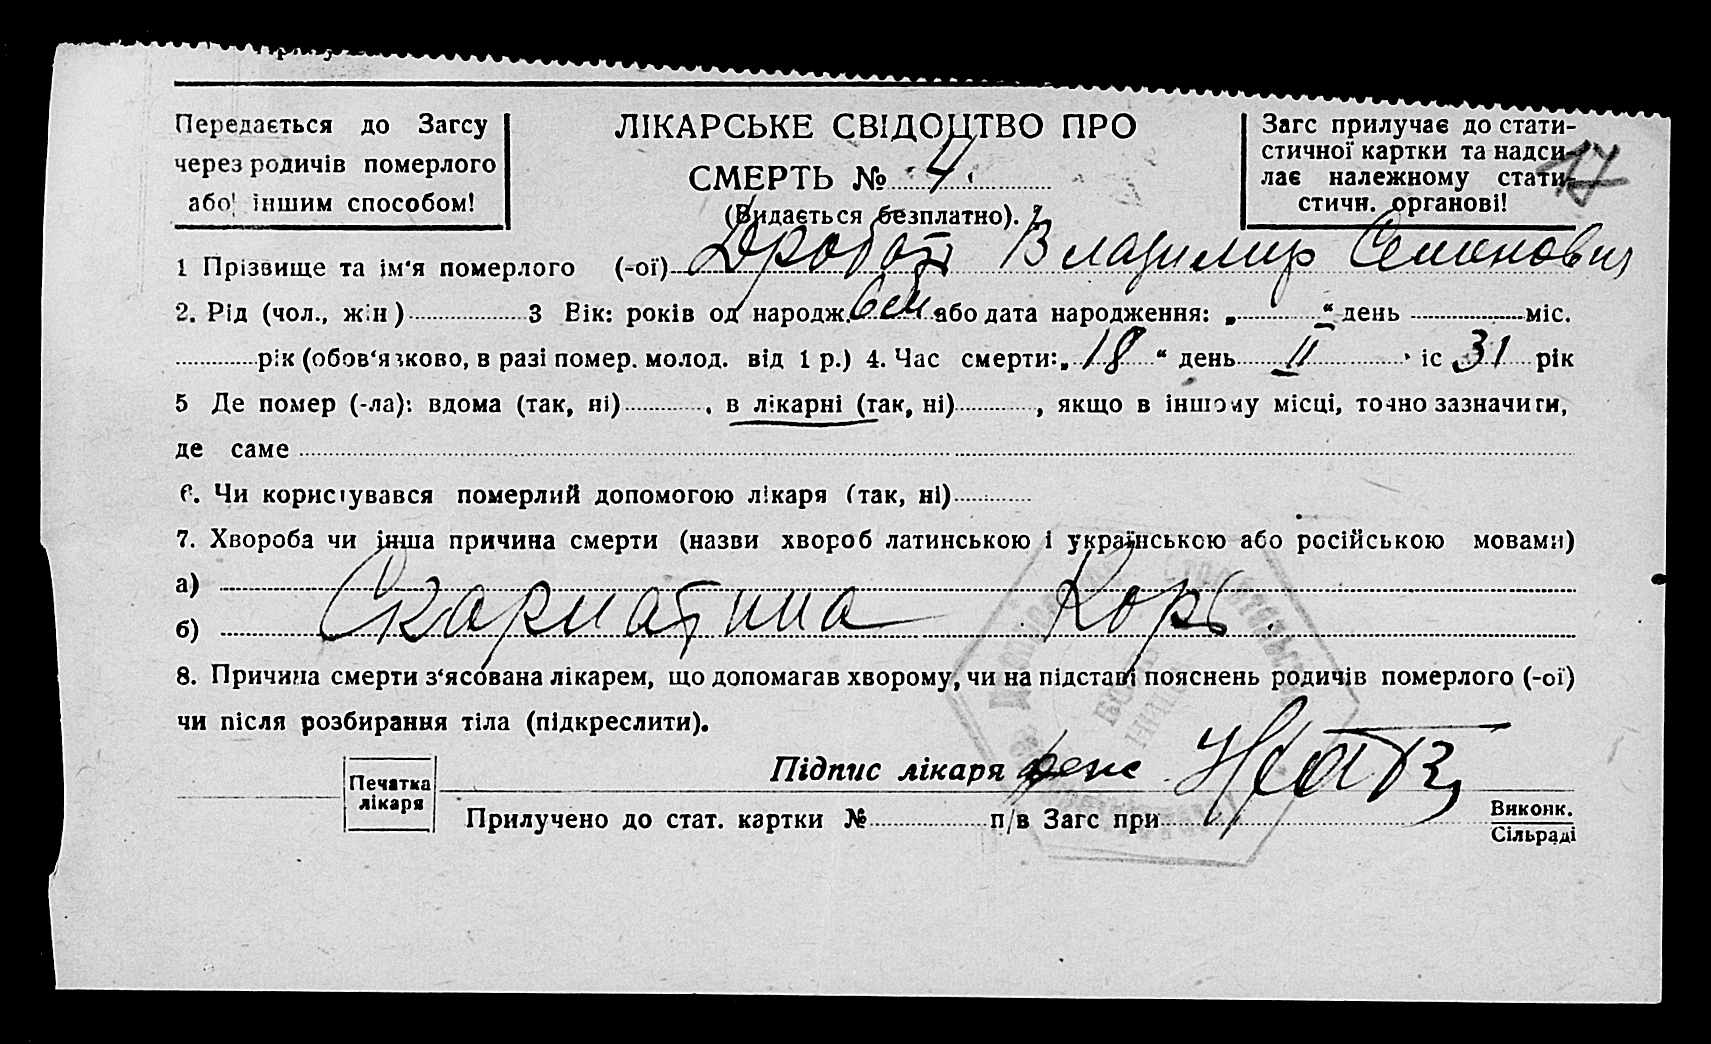 Передається до Загсу
через родичів померлого
або іншим способом!
ЛІКАРСЬКЕ СВІДОЦТВО ПРО
СМЕРТЬ № 4
(Видається безплатно).
Загс прилучає до стати-
стичної картки та надси-
лає належному стати-
стичн. органові!
17
1 Прізвище та ім'я померлого (-ої) Дробот Владимир Семенович
2. Рід (чол., жін) 3 Вік: років од народж. 6 або дата народження: „ “ день міс.
рік (обов'язково, в разі помер. молод. від 1 р.) 4. Час смерти: „ 18 “ день II іс 31 рік
5 Де помер (-ла): вдома (так, ні) , в лікарні (так, ні) , якщо в іншому місці, точно зазначити,
де саме
6. Чи користувався померлий допомогою лікаря (так, ні)
7. Хвороба чи інша причина смерти (назви хвороб латинською і українською або російською мовами)
а)
б) Скарлатина Корь.
8. Причина смерти з'ясована лікарем, що допомагав хворому, чи на підставі пояснень родичів померлого (-ої)
чи після розбирання тіла (підкреслити).
Підпис лікаря
Печатка
лікаря
Прилучено до стат. картки № п/в Загс при Виконк.
Сільраді